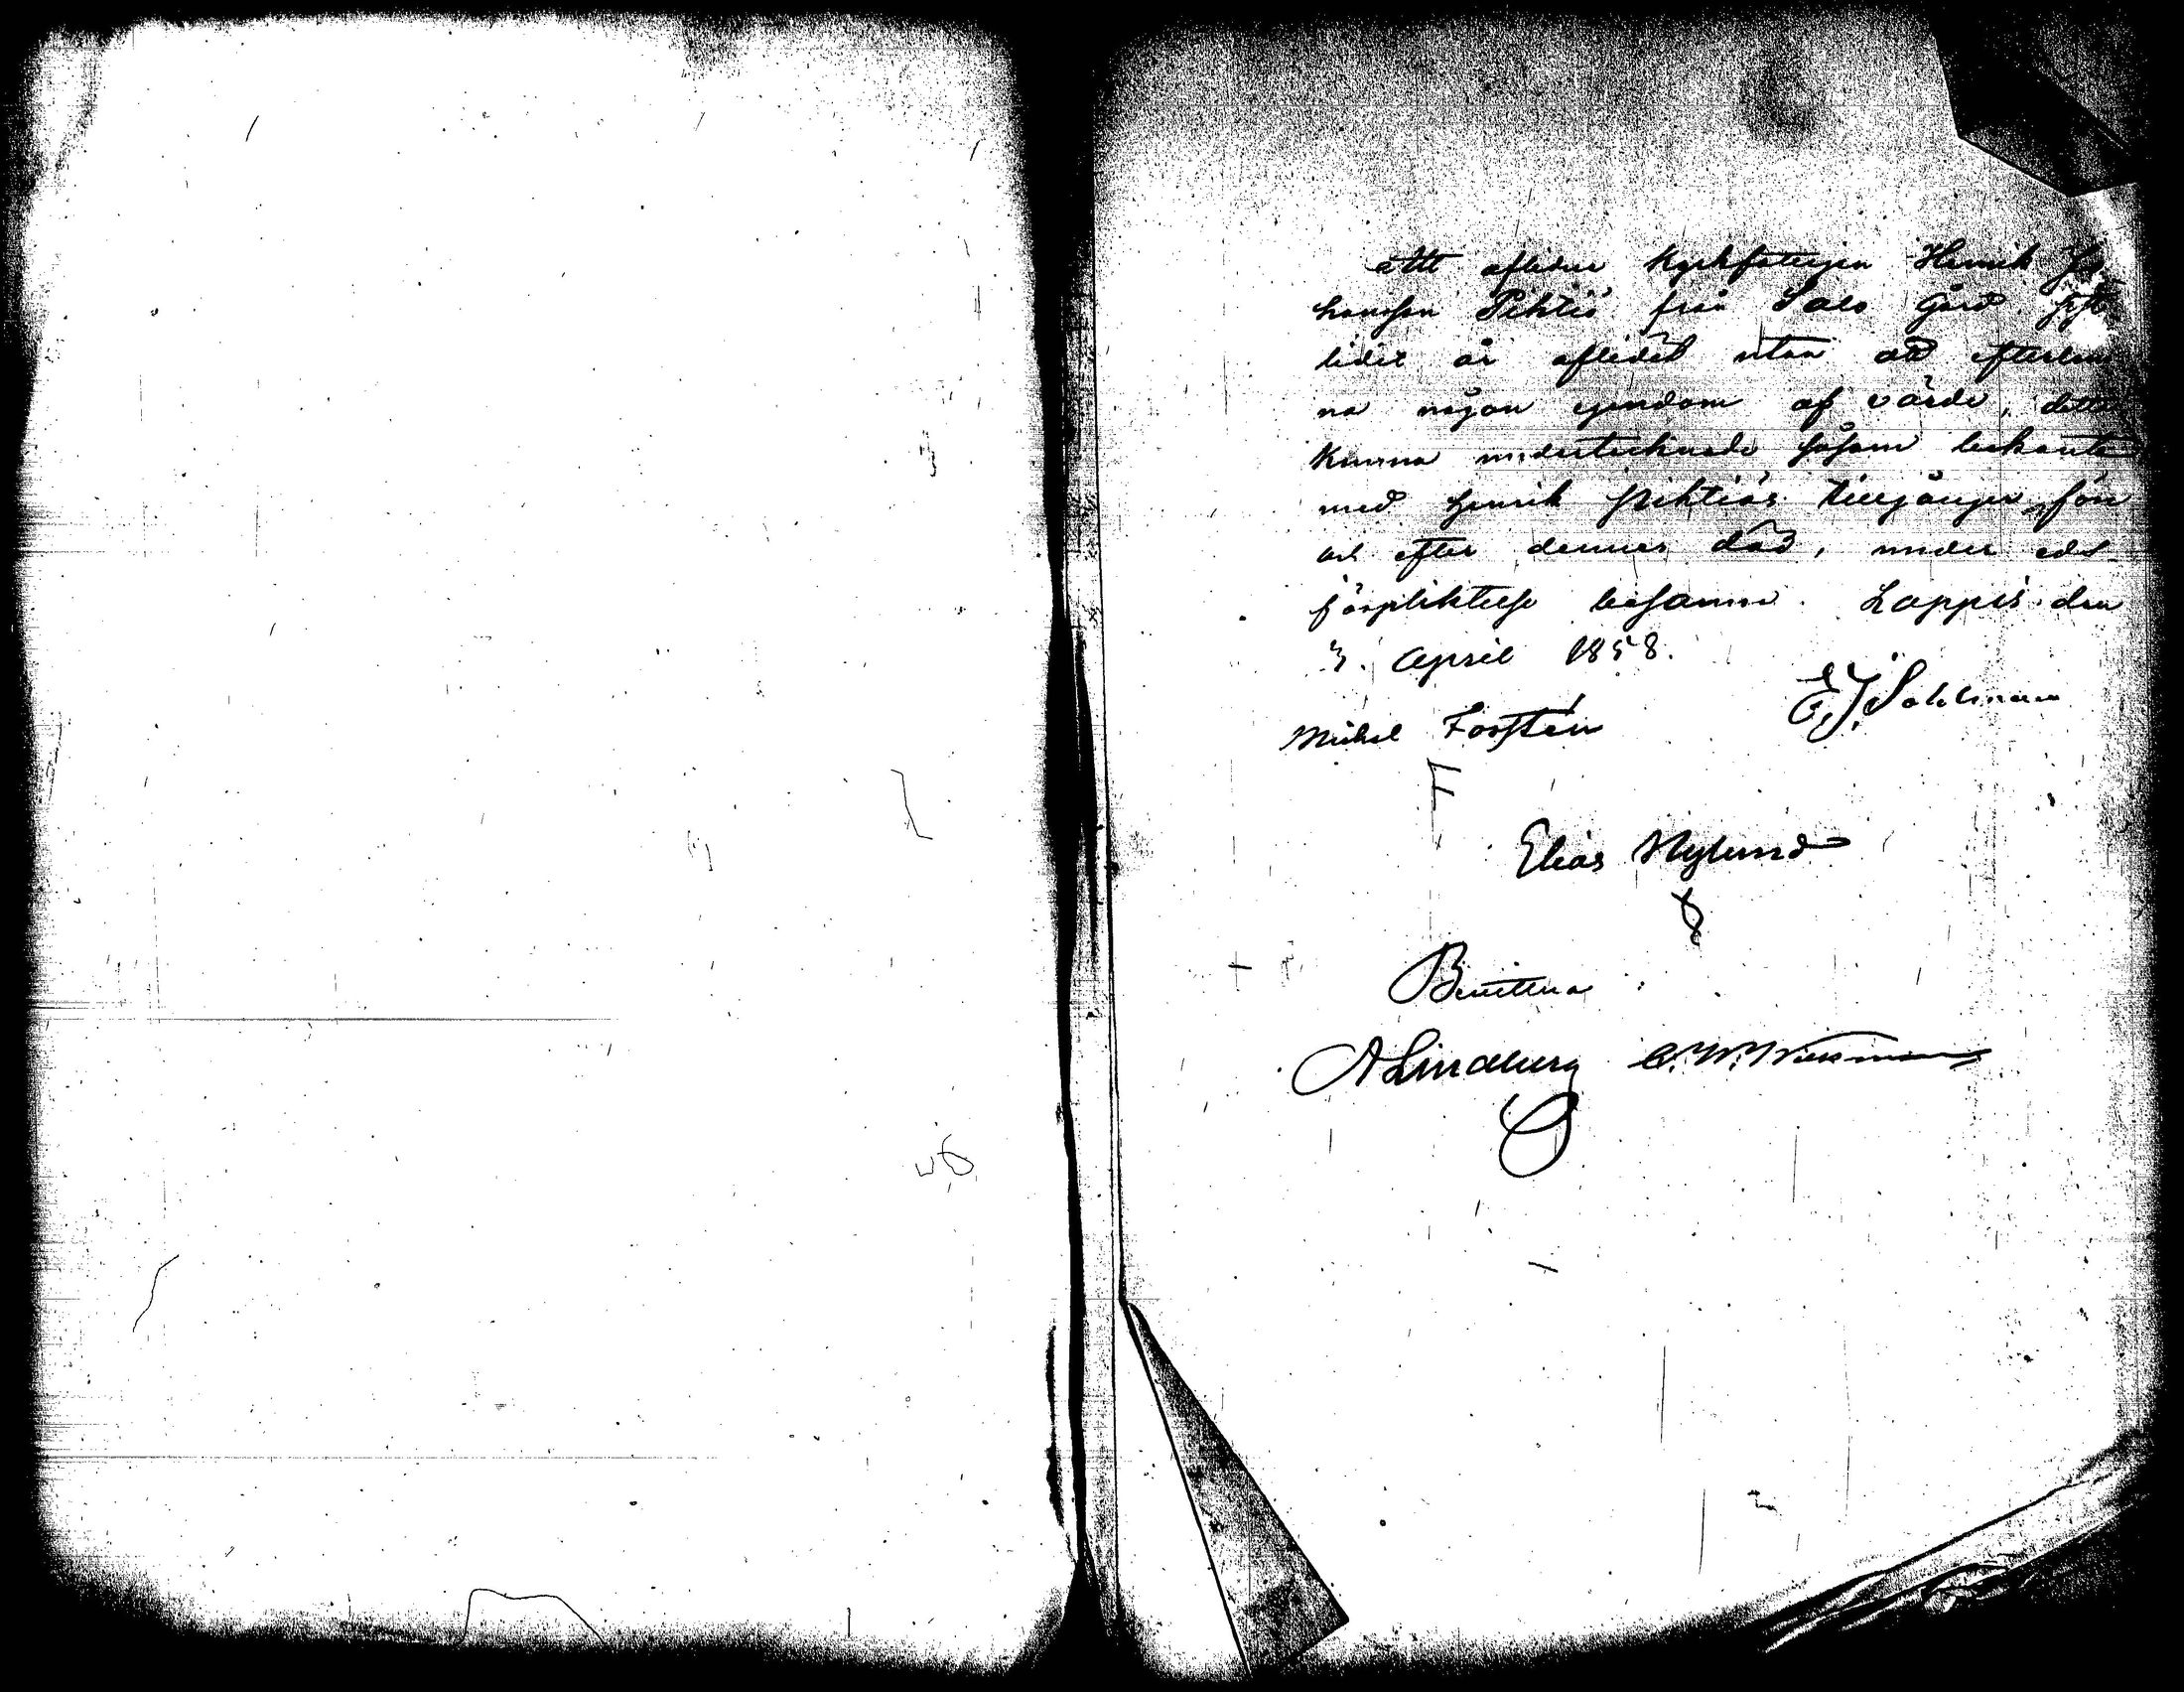 Att aflidne Kyrkfattigen Henrik Jo-
hansson Pihtiö från Salo gård sist-
lidit år aflidit utan att efterlem-
na någon egendom af värde, detta
kunna undertecknade såsom bekante
med Henrik Pihtiös tillgångar för
och efter dennes död, under eds
förpliktelse besanna. Lappis den
3. April 1858.
E. J. Sahlman
Michel Forstén
Elias Nylund
Bevittna
A Lindberg